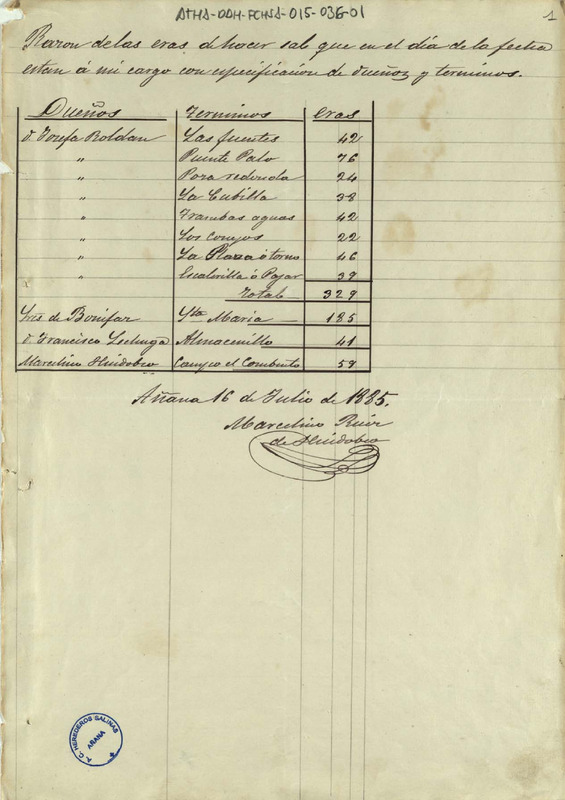 ATHA-DAH-FCHSA-015-036-01
1
Razon de las eras d hacer sal que en el día de la fecha
estan á mi cargo con especificación de dueños y terminos.
Dueños Terminos eras
d. Josefa Roldan Las fuentes 42
" Puente Palo 76
" Poza redonda 24
" La Cubilla 38
" Frambas aguas 42
" Los Conejos 22
" La Plaza ó torno 46
" Escalerilla ó Pajar 39
Total 329
Sres de Bonifaz Sta Maria 185
d. Francisco Lechuga Almacenillo 41
Marcelino Huidobro Campo el Combento 59
Añana 16 de Julio de 1885.
Marcelino Ruiz
de Huidobro
A. C. HEREDEROS SALINAS
AÑANA